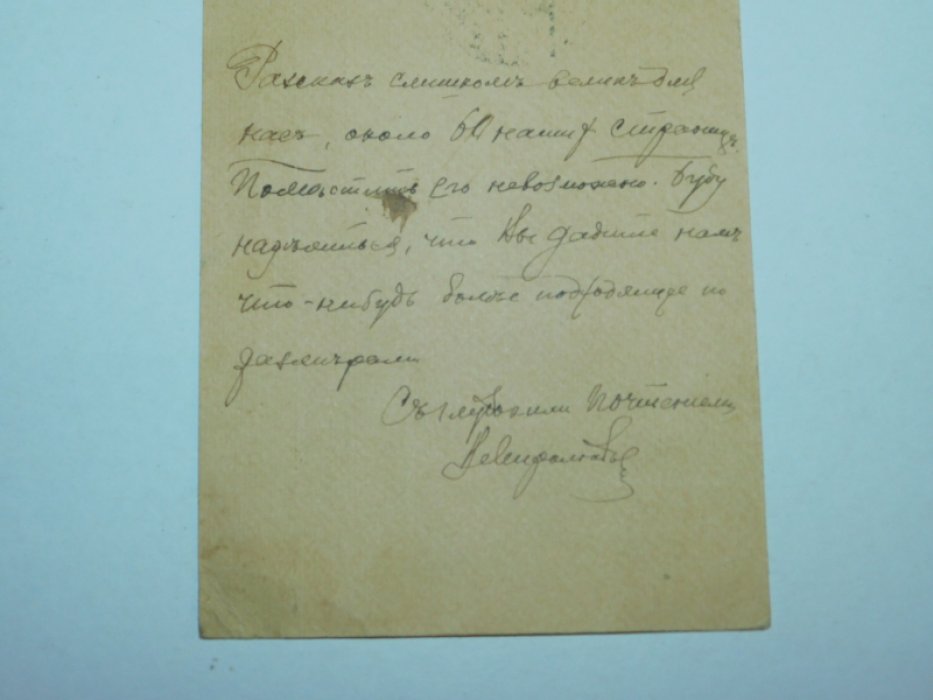 Разсказъ слишкомъ великъ для
насъ, около 60 нашихъ страницъ.
Помѣстить его невозможно. Буду
надѣяться, что Вы дадите намъ
что-нибудь болѣе подходящее по
размѣрамъ
Съ глубокимъ почтеніемъ